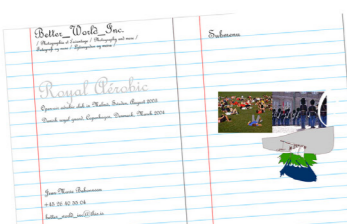 Better_World_Inc.
/ Photographie et Lavantage / Photography and more /
Fotografi og mere / Fotografia og meira /
Royal Aérobic
Openair aérobic club in Malmö, Sweden, August 2003
Danish royal guard, Copenhagen, Denmark, March 2004
Jean Marie Babonneau
better_world_inc@
Submenu